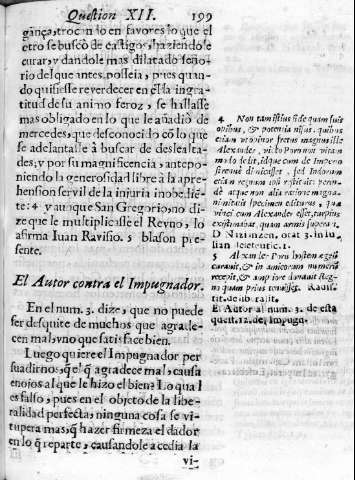 Question XII. 199
gança, trocando en favores lo que el
otro se buscò de castigos, haziendole
curar, y dandole mas dilatado seño-
rio del que antes posseia, pues quan-
do quisiesse reverdecer en èl la ingra-
titud de su animo feroz, se hallasse
mas obligado en lo que le añadiò de
mercedes, que desconocido cõ lo que
se adelantasse à buscar de deslealta-
des; y por su magnificencia, antepo-
niendo la generosidad libre à la apre-
hension servil de la injuria inobediẽ-
te: 4 y aunque San Gregorio, no di-
ze que le multiplicasse el Reyno, lo
afirma Iuan Ravisio. 5 blason pre-
sente.
El Autor contra el Impugnador.
En el num. 3. dize, que no puede
ser desquite de muchos que agrade-
cen mal, vno que satisface bien.
Luego quiere el Impugnador per
suadirnos, q̃ el q̃ agradece mal, causa
enojos al que le hizo el bien? Lo qual
es falso, pues en el objeto de la libe-
ralidad perfecta, ninguna cosa se vi-
tupera mas, q̃ hazer firmeza el dador
en lo q̃ reparte, causandole acedia la
vi-
4 Non tam istius fide quam suis
opibus, & potentia nisus, quibus
etiam vtebatur fretus magnus ille
Alexander, victo Poro non vitam
modo
D. Nazianzen. orat. 3. in Iu-
lian
5 Alexander Porū hostem ægrū
curavit, & in amicorum numerū
recepit, & ampliore donavit Reg-
no quam prius tenuisset. Ravis.
tit. de liberalit.
El Autor al num. 3. de esta
quest. 12. del Impugn.